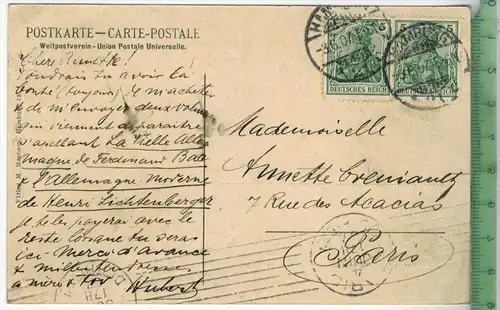 POSTKARTE – CARTE-POSTALE
Weltpostverein - Union Postale Universelle.
Chère Annette!
Voudrais tu avoir la
bonté (toujours) de m'acheter
& de m'envoyer deux volumes
qui viennent de paraître
s'apellant La Vielle Alle
magne de Ferdinand
& l'Allemagne Moderne
de Henri Lichtenberger
je te les payerai avec le
reste lorsque tu seras
ici - Merci d'avance
& mille tendresses
à mère & toi Hubert
DEUTSCHES REICH
DEUTSCHES REICH
5
5
HAMBURG
HAMBURG
Mademoiselle
Annette
7 Rue des Acacias
Paris
PARIS